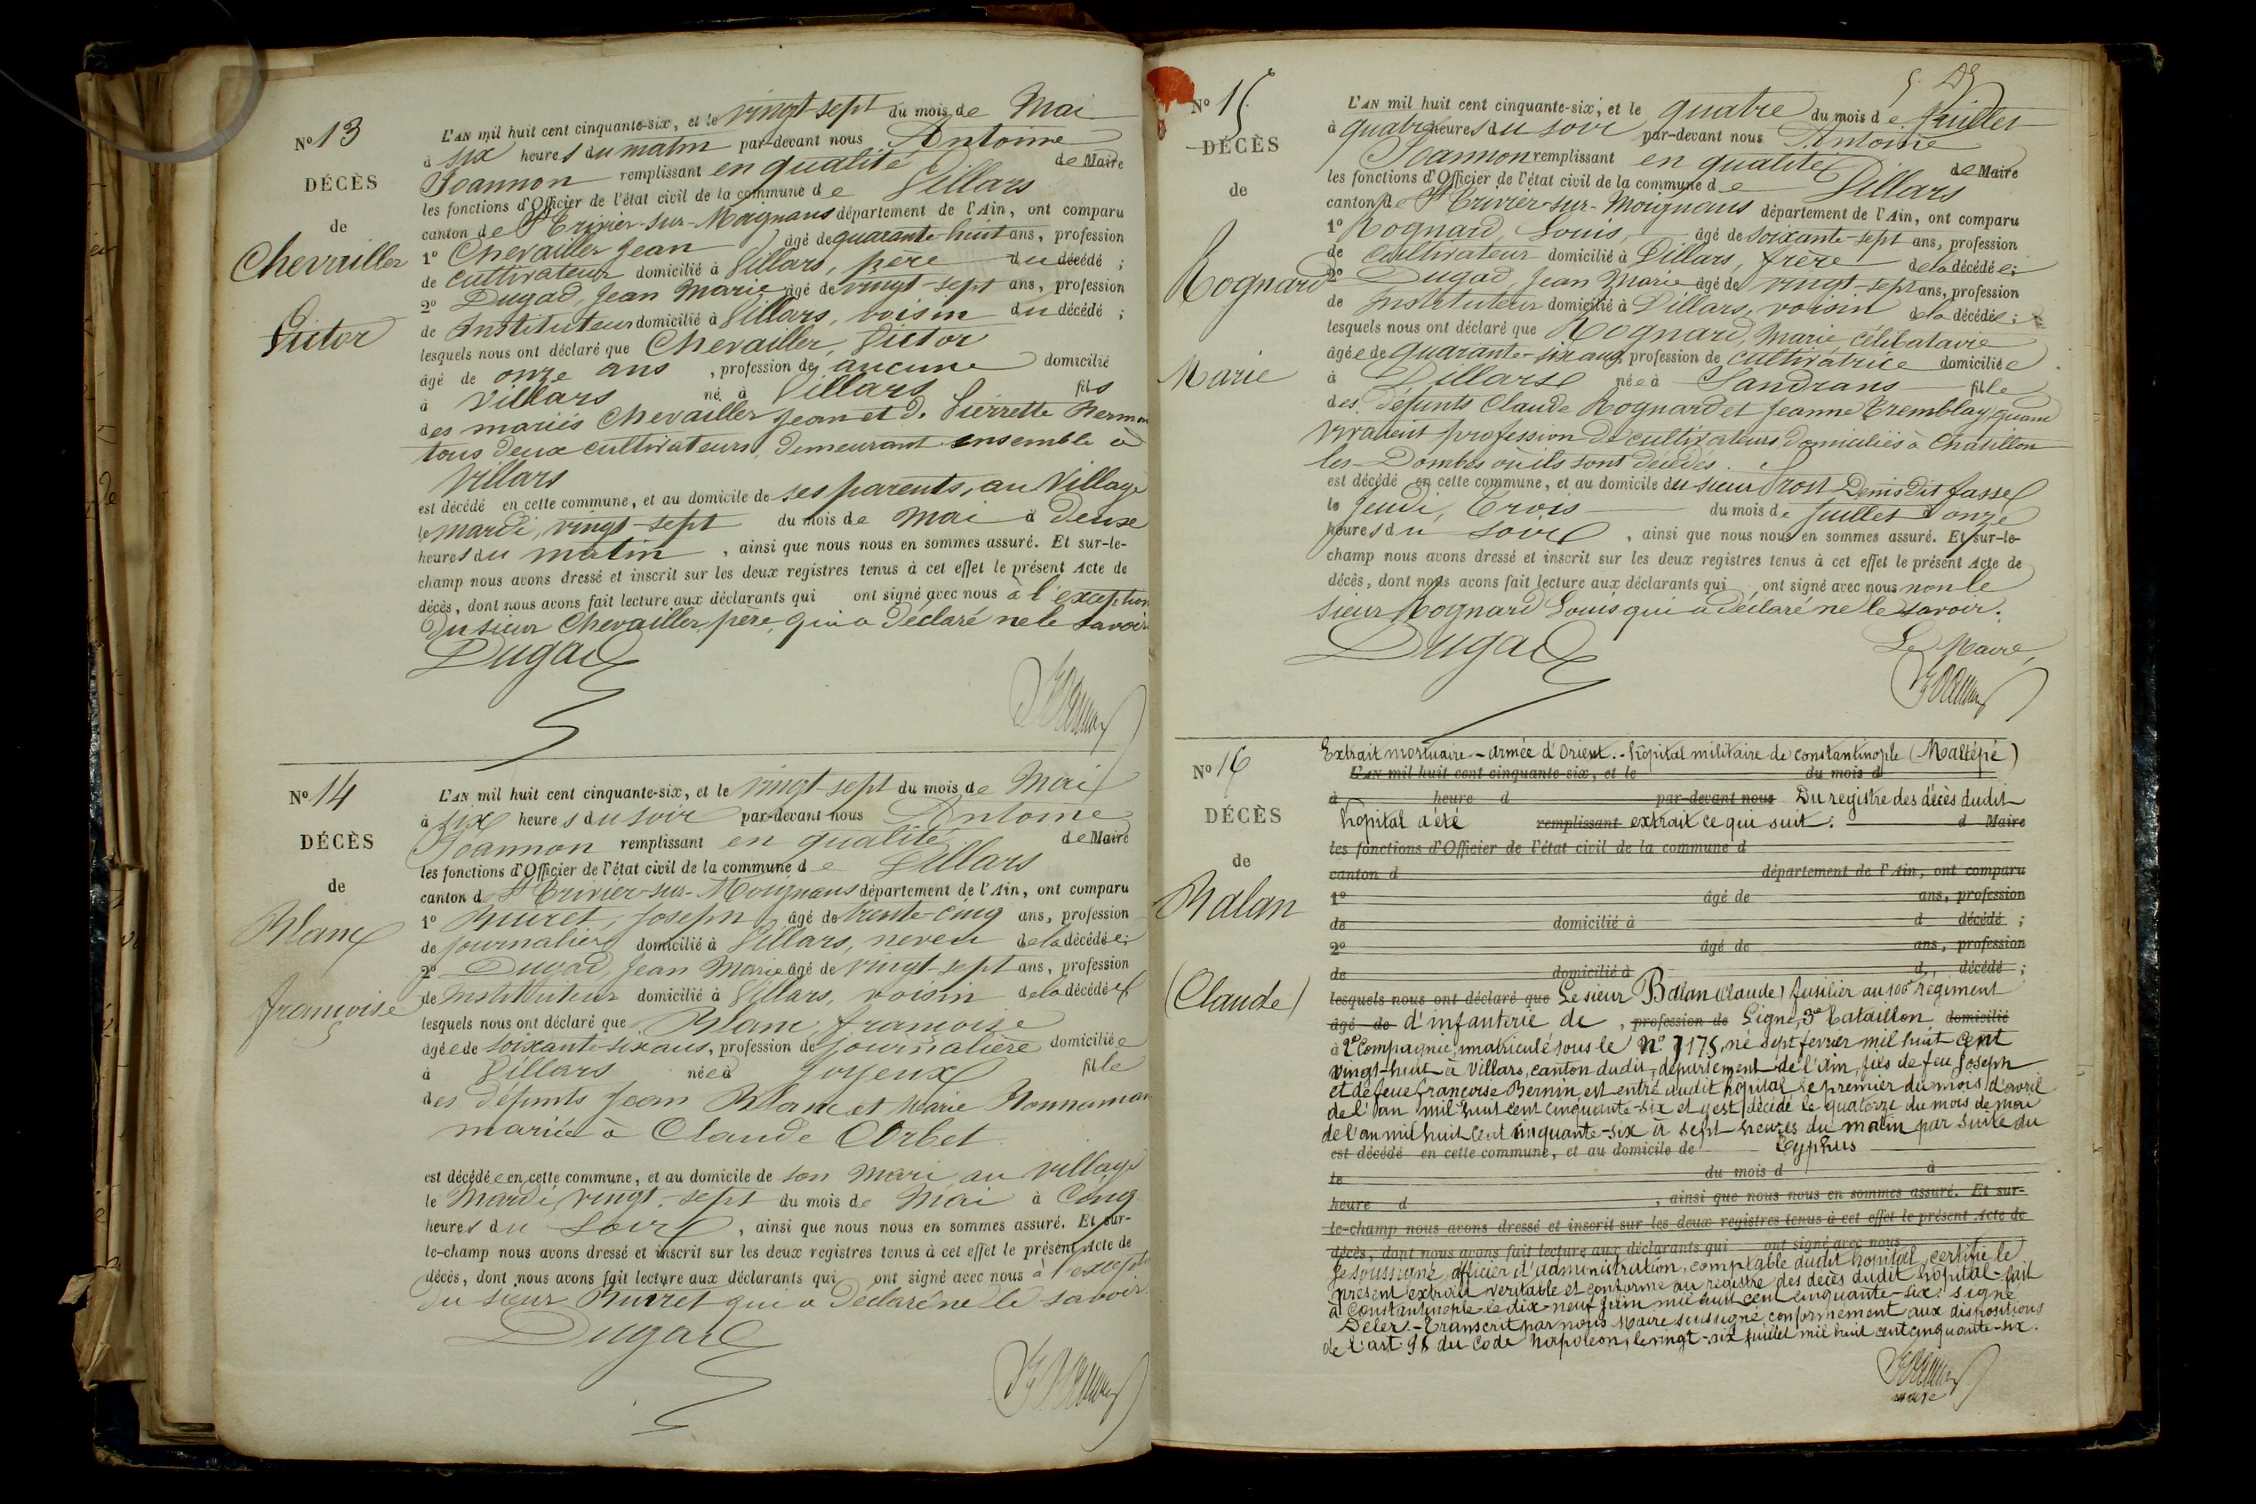 N° 13
DÉCÈS
de
Chevailler
Victor
L'AN mil huit cent cinquante-six, et le vingt-sept du mois de Mai
à six heures du matin par-devant nous Antoine
Joannon remplissant en qualité de Maire
les fonctions d'Officier de l'état civil de la commune de Villars
canton de St Trivier-sur-Moignans département de l'Ain, ont comparu
1° Chevailler Jean âgé de quarante-huit ans, profession
de cultivateur domicilié à Villars, père du décédé ;
2° Dugad, Jean Marie âgé de vingt-sept ans, profession
de Instituteur domicilié à Villars, voisin du décédé ;
lesquels nous ont déclaré que Chevailler, Victor
âgé de onze ans , profession de aucune domicilié
à Villars né à Villars fils
des mariés Chevailler Jean et d. Pierrette
tous deux cultivateurs demeurant ensemble à
Villars
est décédé en cette commune, et au domicile de ses parents, au Village
le mardi, vingt-sept du mois de Mai à deux
heures du matin , ainsi que nous nous en sommes assuré. Et sur-le-
champ nous avons dressé et inscrit sur les deux registres tenus à cet effet le présent Acte de
décès, dont nous avons fait lecture aux déclarants qui ont signé avec nous à l'exception
du sieur Chevailler, père, qui a déclaré ne le savoir
Dugad
Joannon
N° 14
DÉCÈS
de
Blanc
françoise
L'AN mil huit cent cinquante-six, et le vingt-sept du mois de Mai
à six heures du soir par-devant nous Antoine
Joannon remplissant en qualité de Maire
les fonctions d'Officier de l'état civil de la commune de Villars
canton d St Trivier-sur-Moignans département de l'Ain, ont comparu
1° Burret, Joseph, âgé de trente-cinq ans, profession
de journalier domicilié à Villars, neveu de la décédée;
2° Dugad, Jean Marie âgé de vingt-sept ans, profession
de Instituteur domicilié à Villars, voisin de la décédée
lesquels nous ont déclaré que Blanc, françoise
âgée de soixante-six ans, profession de journalière domiciliée
à Villars née à Joyeux fille
des défunts Jean Blanc et Marie
mariée à Claude Orbet
est décédée en cette commune, et au domicile de son mari au village
le Mardi, vingt-sept du mois de Mai à cinq
heures du soir , ainsi que nous nous en sommes assuré. Et sur-
le-champ nous avons dressé et inscrit sur les deux registres tenus à cet effet le présent Acte de
décès, dont nous avons fait lecture aux déclarants qui ont signé avec nous à l'except
du sieur Burret qui a déclaré ne le savoir
Dugad
Joannon
N° 15
DÉCÈS
de
Rognard
Marie
L'AN mil huit cent cinquante-six, et le quatre du mois de Juillet
à quatre heures du soir par-devant nous Antoine
Joannon remplissant en qualité de Maire
les fonctions d'Officier de l'état civil de la commune de Villars
canton de St Trivier-sur-Moignans département de l'Ain, ont comparu
1° Rognard, Louis, âgé de soixante-sept ans, profession
de cultivateur domicilié à Villars, frère de la décédée;
2° Dugad Jean Marie âgé de vingt-sept ans, profession
de Instituteur domicilié à Villars, voisin de la décédée;
lesquels nous ont déclaré que Rognard, Marie, célibataire
âgée de quarante-six ans, profession de cultivatrice domiciliée
à Villars née à Sandrans fille
des défunts Claude Rognard et Jeanne Tremblay, quand
vivaient profession de cultivateurs domiciliés à Chatillon
les-Dombes où ils sont décédés.
est décédé en cette commune, et au domicile du sieur Denis dit
le jeudi, trois du mois de juillet à onze
heures du soir , ainsi que nous nous en sommes assuré. Et sur-le-
champ nous avons dressé et inscrit sur les deux registres tenus à cet effet le présent Acte de
décès, dont nous avons fait lecture aux déclarants qui ont signé avec nous non le
sieur Rognard Louis qui a déclaré ne le savoir.
Dugad
Le Maire,
Joannon
N° 16
DÉCÈS
de
Balan
(Claude)
Extrait mortuaire. - armée d'Orient. - hôpital militaire de Constantinople (Maltépé)
L'AN mil huit cent cinquante-six, et le du mois d
à heure d par-devant nous Du registre des décès dudit
hôpital a été remplissant extrait ce qui suit : d Maire
les fonctions d'Officier de l'état civil de la commune d
canton d département de l'Ain, ont comparu
1° âgé de ans, profession
de domicilié à d décédé ;
2° âgé de ans, profession
de domicilié à d décédé ;
lesquels nous ont déclaré que Le sieur Balan (Claude) fusilier au 100e régiment
âgé de d'infanterie de , profession de Ligne, 3e bataillon domicilié
à 2e compagnie, immatriculé sous le n° 7175, né sept février mil huit cent
vingt-huit à Villars, canton dudit, département de l'Ain, fils de feu Joseph
et de feue françoise Bernin, est entré audit hôpital le premier du mois d'avril
de l'an mil huit cent cinquante-six et y est décédé le quatorze du mois de mai
de l'an mil huit cent cinquante-six à sept heures du matin par suite du
est décédé en cette commune, et au domicile de Typhus
le du mois d à
heure d , ainsi que nous nous en sommes assuré. Et sur-
le-champ nous avons dressé et inscrit sur les deux registres tenus à cet effet le présent Acte de
décès, dont nous avons fait lecture aux déclarants qui ont signé avec nous
Je soussigné, officier d'administration, comptable dudit hôpital, certifie le
présent extrait véritable et conforme au registre des décès dudit hôpital - fait
à Constantinople le dix-neuf juin mil huit cent cinquante-six. signé
Deler. - Transcrit par nous Maire soussigné conformément aux dispositions
de l'art 98 du Code Napoléon, le vingt-six juillet mil huit cent cinquante-six.
Joannon
maire